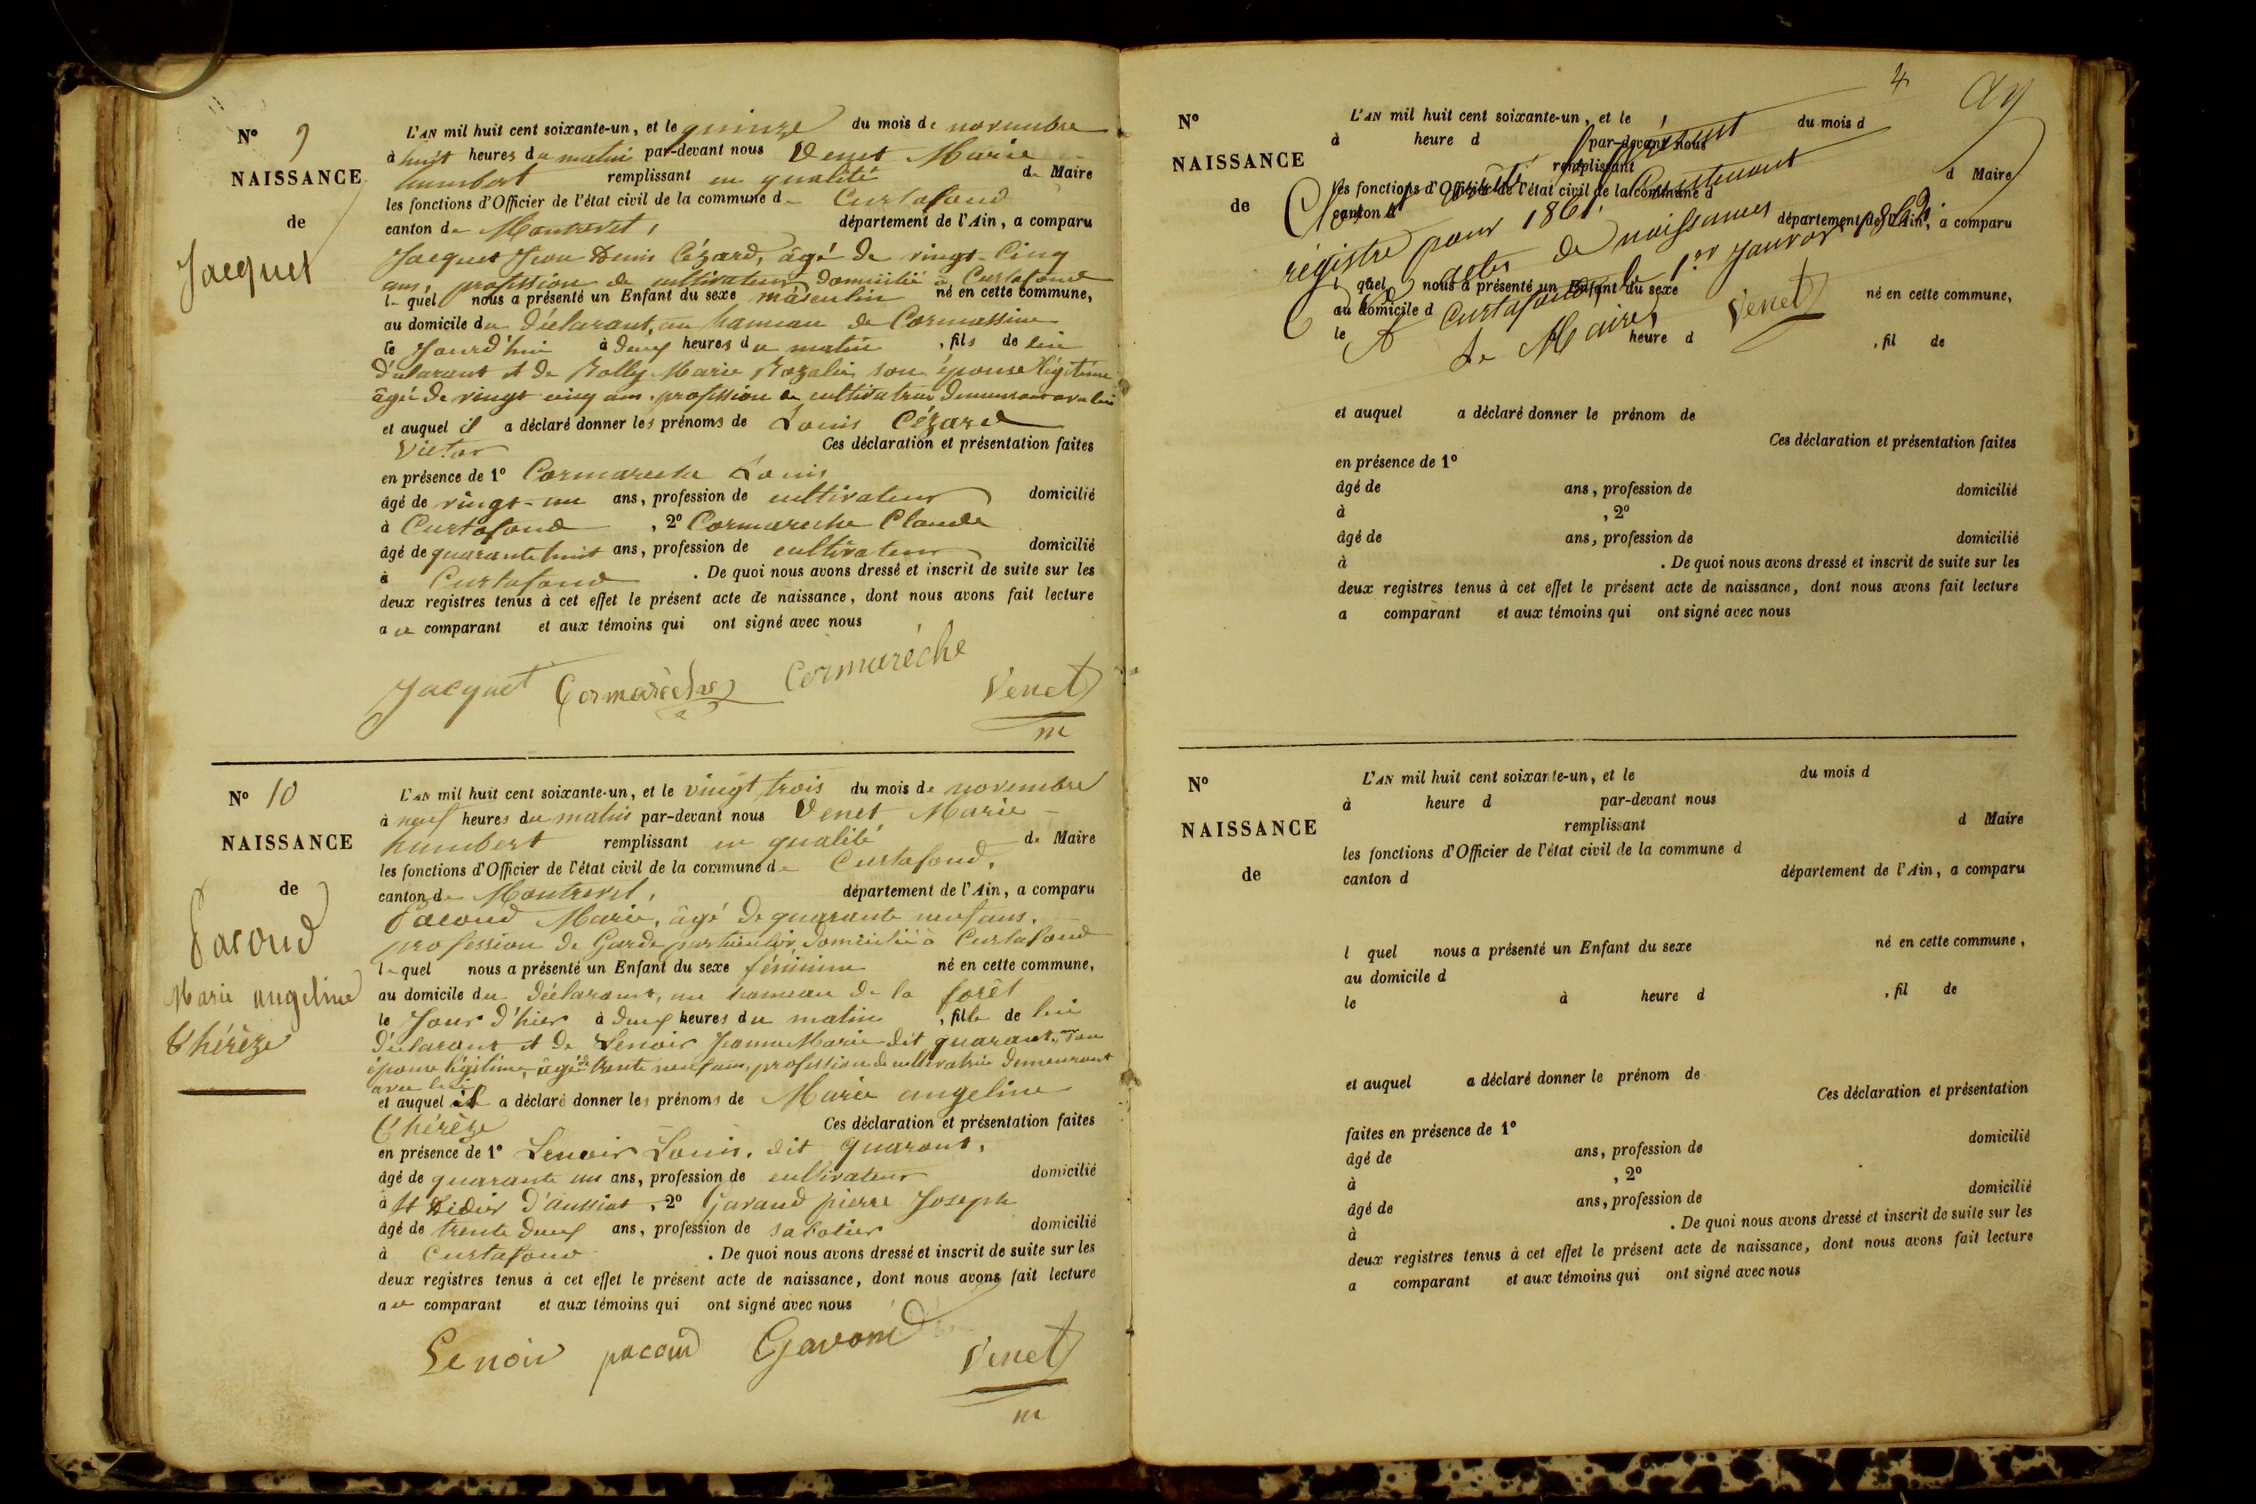 N° 9
NAISSANCE
de
Jacquet
L'AN mil huit cent soixante-un, et le quinze du mois de novembre
à huit heures du matin par-devant nous Venet Marie
humbert remplissant en qualité de Maire
les fonctions d'Officier de l'état civil de la commune de Curtafond
canton de Montrevel, département de l'Ain, a comparu
Jacquet Jean Denis Cézard, âgé de vingt-cinq
ans, profession de cultivateur, domicilié à Curtafond
lequel nous a présenté un Enfant du sexe masculin né en cette commune,
au domicile du déclarant, au hameau de Cormassine
le Jourd'hui à deux heures du matin, fils de lui
déclarant et de Rolly Marie Rozalie son épouse légitime
âgée de vingt cinq ans, profession de cultivatrice demeurant avec lui
et auquel il a déclaré donner les prénoms de Louis Cézard
Victor Ces déclaration et présentation faites
en présence de 1° Cormareche Louis
âgé de vingt-un ans, profession de cultivateur domicilié
à Curtafond, 2° Cormareche Claude
âgé de quarante huit ans, profession de cultivateur domicilié
à Curtafond. De quoi nous avons dressé et inscrit de suite sur les
deux registres tenus à cet effet le présent acte de naissance, dont nous avons fait lecture
au comparant et aux témoins qui ont signé avec nous
Jacquet Cormarèche Cormarèche Venet
m
N° 10
NAISSANCE
de
Pacoud
Marie angeline
Thérèze
L'AN mil huit cent soixante-un, et le vingt trois du mois de novembre
à neuf heures du matin par-devant nous Venet Marie
humbert remplissant en qualité de Maire
les fonctions d'Officier de l'état civil de la commune de Curtafond,
canton de Montrevel, département de l'Ain, a comparu
Pacoud Marie, âgé de quarante neuf ans,
profession de Garde particulier, domicilié à Curtafond
lequel nous a présenté un Enfant du sexe féminin né en cette commune,
au domicile du déclarant, au hameau de la forêt
le Jour d'hier à deux heures du matin, fille de lui
déclarant et de Lenoir Jeanne Marie dit quarant, son
épouse légitime, âgée de trente neuf ans, profession de cultivatrice demeurant
avec lui
et auquel il a déclaré donner les prénoms de Marie angeline
Thérèze Ces déclaration et présentation faites
en présence de 1° Lenoir Louis, dit quarant,
âgé de quarante un ans, profession de cultivateur domicilié
à St Didier d'aussiat, 2° Gavand pierre Joseph
âgé de trente deux ans, profession de sabotier domicilié
à Curtafond. De quoi nous avons dressé et inscrit de suite sur les
deux registres tenus à cet effet le présent acte de naissance, dont nous avons fait lecture
au comparant et aux témoins qui ont signé avec nous
Lenoir pacoud Gavand Venet
m
4
N°
NAISSANCE
de
L'AN mil huit cent soixante-un, et le du mois d
à heure d par-devant nous
remplissant d Maire
les fonctions d'Officier de l'état civil de la commune d
canton d département de l'Ain, a comparu
Clos et arrêté le présent
registre pour 1861, contenant
actes de naissances
A Curtafond, le 1er Janvier 1862
Le Maire, Venet
l quel nous a présenté un Enfant du sexe né en cette commune,
au domicile d
le à heure d, fil de
et auquel a déclaré donner le prénom de
Ces déclaration et présentation faites
en présence de 1°
âgé de ans, profession de domicilié
à, 2°
âgé de ans, profession de domicilié
à. De quoi nous avons dressé et inscrit de suite sur les
deux registres tenus à cet effet le présent acte de naissance, dont nous avons fait lecture
a comparant et aux témoins qui ont signé avec nous
N°
NAISSANCE
de
L'AN mil huit cent soixante-un, et le du mois d
à heure d par-devant nous
remplissant d Maire
les fonctions d'Officier de l'état civil de la commune d
canton d département de l'Ain, a comparu
l quel nous a présenté un Enfant du sexe né en cette commune,
au domicile d
le à heure d, fil de
et auquel a déclaré donner le prénom de
Ces déclaration et présentation
faites en présence de 1°
âgé de ans, profession de domicilié
à, 2°
âgé de ans, profession de domicilié
à. De quoi nous avons dressé et inscrit de suite sur les
deux registres tenus à cet effet le présent acte de naissance, dont nous avons fait lecture
a comparant et aux témoins qui ont signé avec nous